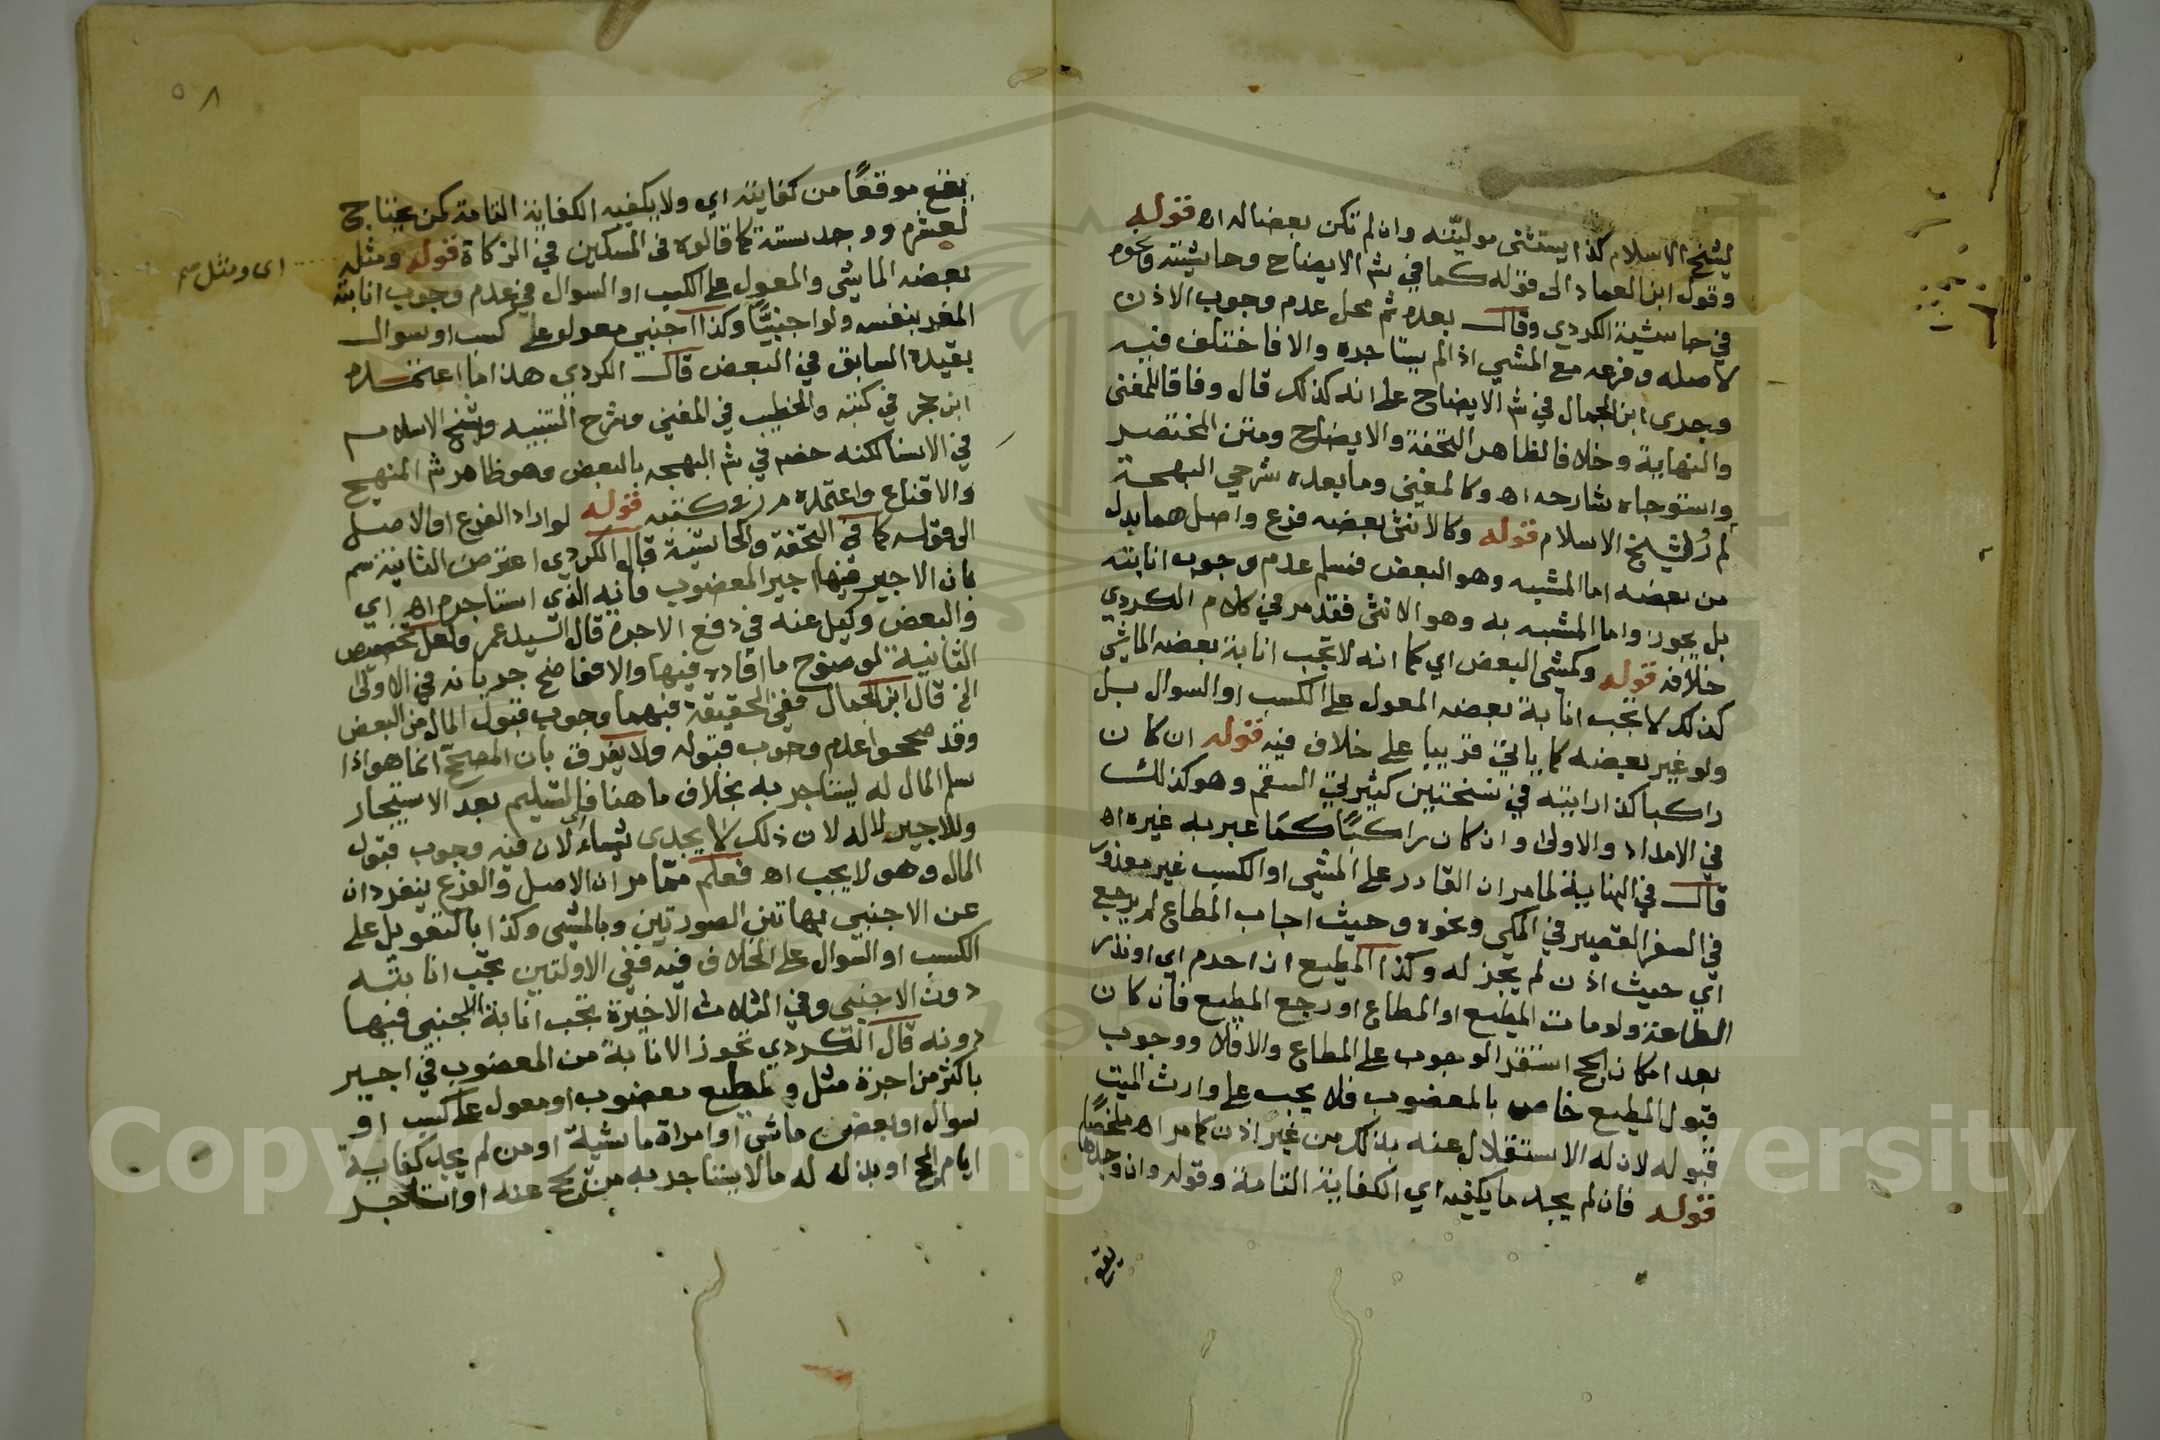 لشيخ الاسلام كذا يستثنى موليته وان لم تكن بعضا له اه قوله
وقول ابن العماد الى قوله كما في شم الايضاح وحاشيته ونحوه
في حاشية الكردي وقال بعده ثم محل عدم وجوب الاذن
لاصله وفرعه مع المشي اذا لم يستاجره والا فاختلف فيه
وجرى ابن الجمال في شم الايضاح على انه كذلك قال وفاقا للمغنى
والنهاية وخلافا لظاهر التحفة والايضاح ومتن المختصر
واستوجاه شارحه اه وكالمغني وما بعده شرحي البهجة
لم ر ولشيخ الاسلام قوله وكالانثى بعضه فرع واصل هما بدل
من بعضه اما المشبه وهو البعض فنسلم عدم وجوب انابته
بل يجوز واما المشبه به وهو الانثى فقد مر في كلام الكردي
خلافه قوله وكمشى البعض اي كما انه لا تجب انابة بعضه الماشي
كذلك لا تجب انابة بعضه المعول على الكسب او السوال بل
ولو غير بعضه كما ياتي قريبا على خلاف فيه قوله ان كان
راكبا كذا رايته في نسختين كثيرتي السقم وهو كذلك
في الامداد والاولى وان كان راكبًا كما عبر به غيره اه
قال في النهاية لما مر ان القادر على المشي او الكسب غير معذور
في السفر القصير في المكي ونحوه وحيث اجاب المطاع لم يرجع
اي حيث اذن لم يجز له وكذا المطيع ان احرم اي او نذر
الطاعة ولو مات المطيع او المطاع او رجع المطيع فان كان
بعد امكان الحج استقر الوجوب على المطاع والا فلا ووجوب
قبول المطيع خاص بالمعضوب فلا يجب على وارث الميت
قبوله لان له الاستقلال عنه بذلك من غير اذن كما مر اه ملخصًا
قوله فان لم يجد ما يكفيه اي الكفاية التامة وقوله وان وجد ما
يقع
٥٨
يقع موقعًا من كفايته اي ولا يكفيه الكفاية التامة كمن يحتاج
لعشرة ووجد ستة كما قالوه في المسكين في الزكاة قوله ومثله
اى ومثل صح
بعضه الماشي والمعول على الكسب او السوال في عدم وجوب انابته
المغرر بنفسه ولو اجنبيًّا وكذا اجنبي معول على كسب او سوال
بقيده السابق في البعض قال الكردي هذا ما اعتمده
ابن حجر في كتبه والخطيب في المغني وشرح التنبيه وشيخ الاسلام
في الاسنا لكنه خصه في شم البهجه بالبعض وهو ظاهر شم المنهج
والاقناع واعتمده م ر في كتبه قوله لو اراد الفرع او الاصل
الى قوله كما في التحفة والحاشية قال الكردي اعترض الثانية سم
بان الاجير فيها اجير المعضوب فانيه الذي استاجره اه اي
والبعض وكيل عنه في دفع الاجرة قال السيد عمر ولعل تخصيص
الثانية لوضوح ما افاده فيها والا فواضح جريانه في الاولى
الخ قال ابن الجمال ففي الحقيقة فيهما وجوب قبول المال من البعض
وقد صححوا عدم وجوب قبوله ولا يفرق بان المصحح انما هو اذا
سلم المال له ليستاجر به بخلاف ما هنا فالتسليم بعد الاستيجار
وللاجير لا له لان ذلك لا يجدى شياء لان فيه وجوب قبول
المال وهو لا يجب اه فعلم مما مر ان الاصل والفرع ينفردان
عن الاجنبي بهاتين الصورتين وبالمشى وكذا بالتعويل على
الكسب او السوال على الخلاف فيه ففي الاولتين تجب انابته
دون الاجنبي وفي الثلاث الاخيرة تجب انابة الاجنبى فيها
دونه قال الكردي تجوز الانابة من المعضوب في اجير
باكثر من اجرة مثل ولمطيع معضوب او معول على كسب او
سوال او بعض ماشى او امراة ماشية او من لم يجد كفاية
ايام الحج او بذل له مالا يستاجر به من يحج عنه او استاجر